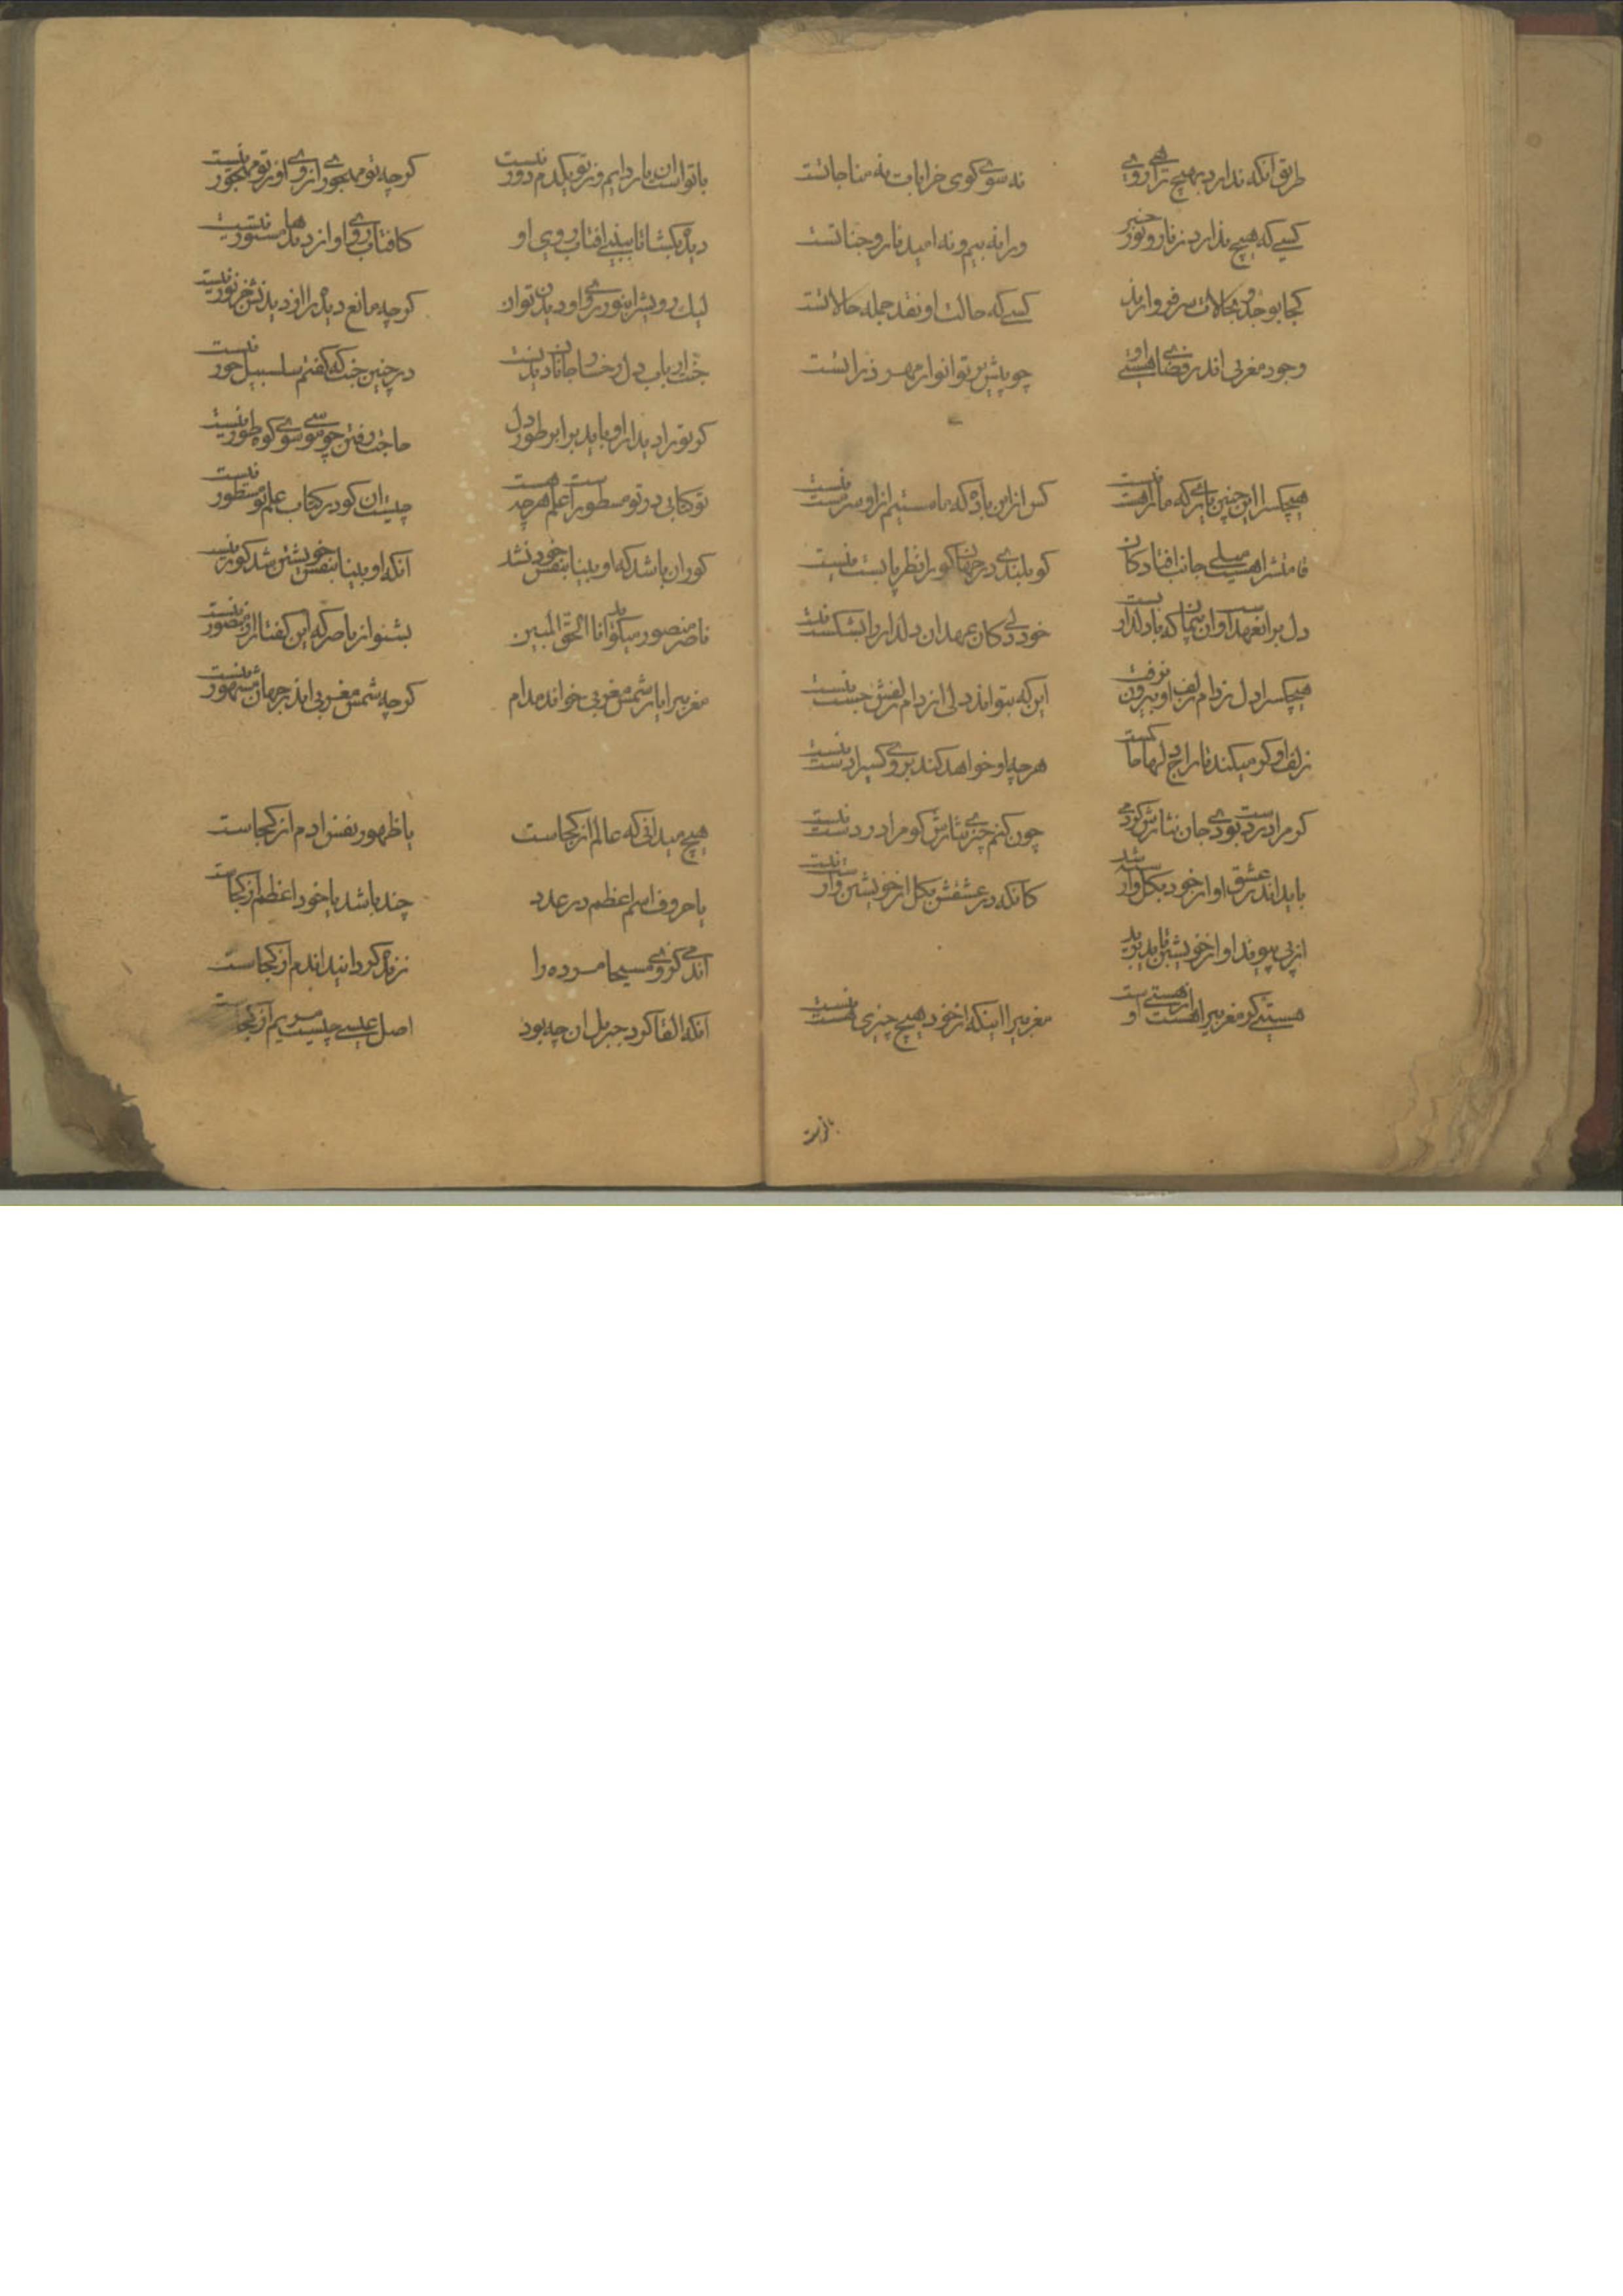 طریق انکه ندارد بهیچ روی تراهی نه سوی کوی خرابات نه مناجاتست
کسی که هیچ ندارد ز نار و نور خبر ورا نه بیم و نه امید نار و جناتست
کجا بوجد و بحالات سر فرو ارند کسی که حالت او نقد جمله حالاتست
وجود مغربی اندر فضای هستی او چو پیش پرتو انوار مهر ذراتست
هیچکس را این چنین یاری که ما را هست نیست کس ازین باده که ما مستیم ازاو سرمست نیست
قامتش را هست میلی جانب افتادکان کو بلندی در جهان کورا نظر با پست نیست
دل بران عهدست و ان پیمان که با دلدار بست خود دلی کان عهد ان دلدار را بشکست نیست
هیچکس را دل ز دام زلف او بیرون نرفت این که بتواند دلی از دام زلفش جست نیست
زلف او کر میکند تاراج دلها ما کست هرچه او خواهد کند بروی کسی را دست نیست
کر مرا در دست بودی جان نثارش کردمی چون کنم چیزی نثارش کو مرا در دست نیست
باید اندر عشق او از خود بکل وارسته شد کانکه در عشقش بکل از خویشتن وارست نیست
از پی پیوند او از خویشتن باید برید
هستی کر مغربی را هست از هستی اوست مغربی را اینکه از خود هیچ چیزی هست نیست
باتواست
باتواست ان یار دایم وز تو یکدم دور نیست کرچه تو مهجوری از وی او ز تو مهجور نیست
دیده بکشا تا ببینی افتاب روی او کافتاب روی او از دیدها مستور نیست
لیک رویش را بنور روی او دیدن توان کرچه مانع دیده را از دیدنش جز نور نیست
جنت ارباب دل رخسار جانان دیدنست در چنین جنت که کفتم سلسبیل و حور نیست
کو تو را دیدار او باید برا بر طور دل حاجت رفتن چو موسی سوی کوه طور نیست
تو کتابی در تو مسطور است علم هرچه هست چیست ان کو در کتاب علم تو مسطور نیست
کور ان باشد که او بینا بنفس خود نشد انکه او بینا بنفس خویشتن شد کور نیست
ناصر منصور میکوید انا الحق المبین بشنو از ناصر که این کفتار از منصور نیست
مغربی را یار شمس مغربی خواند مدام کرچه شمس مغربی اندر جهان مشهور نیست
هیچ میدانی که عالم از کجاست یا ظهور نفس ادم از کجاست
یا حروف اسم اعظم در عدد چند باشد یا خود اعظم از کجاست
اندمی کز وی مسیحا مرده را زنده کردانید اندم از کجاست
انکه القا کرد جبریل ان چه بود اصل عیسی چیست مریم از کجاست